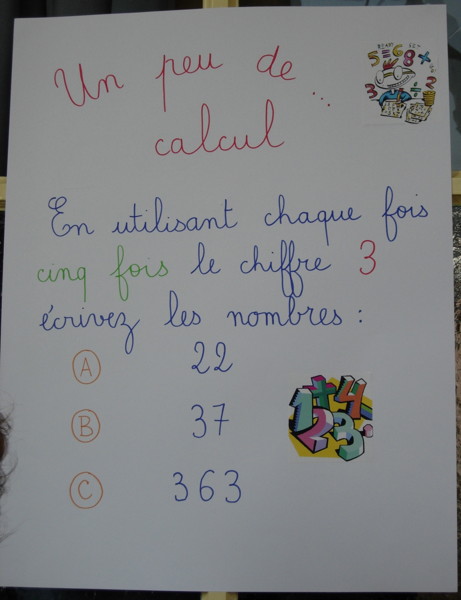 Un peu de ...
calcul
En utilisant chaque fois
cinq fois le chiffre 3
écrivez les nombres :
A 22
B 37
C 363